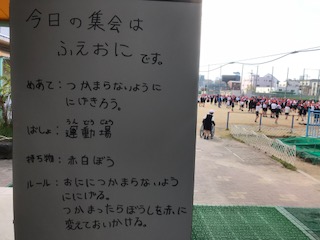 今日の集会は
ふえおにです。
めあて：つかまらないように
にげきろう。
ばしょ：運動場
うんどうじょう
持ち物：赤白ぼう
ルール：おににつかまらないよう
ににげる。
つかまったらぼうしを赤に
変えておいかける。